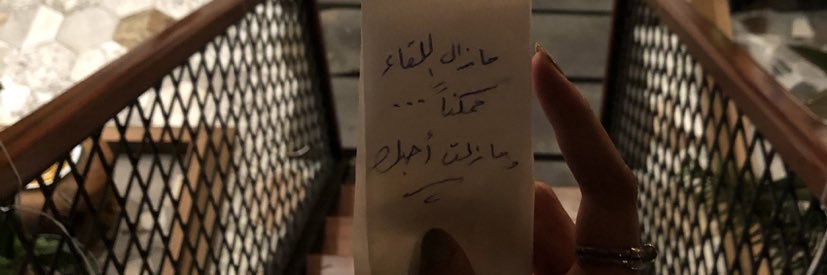 مازال اللقاء
ممكناً ...
ومازلت أحبك